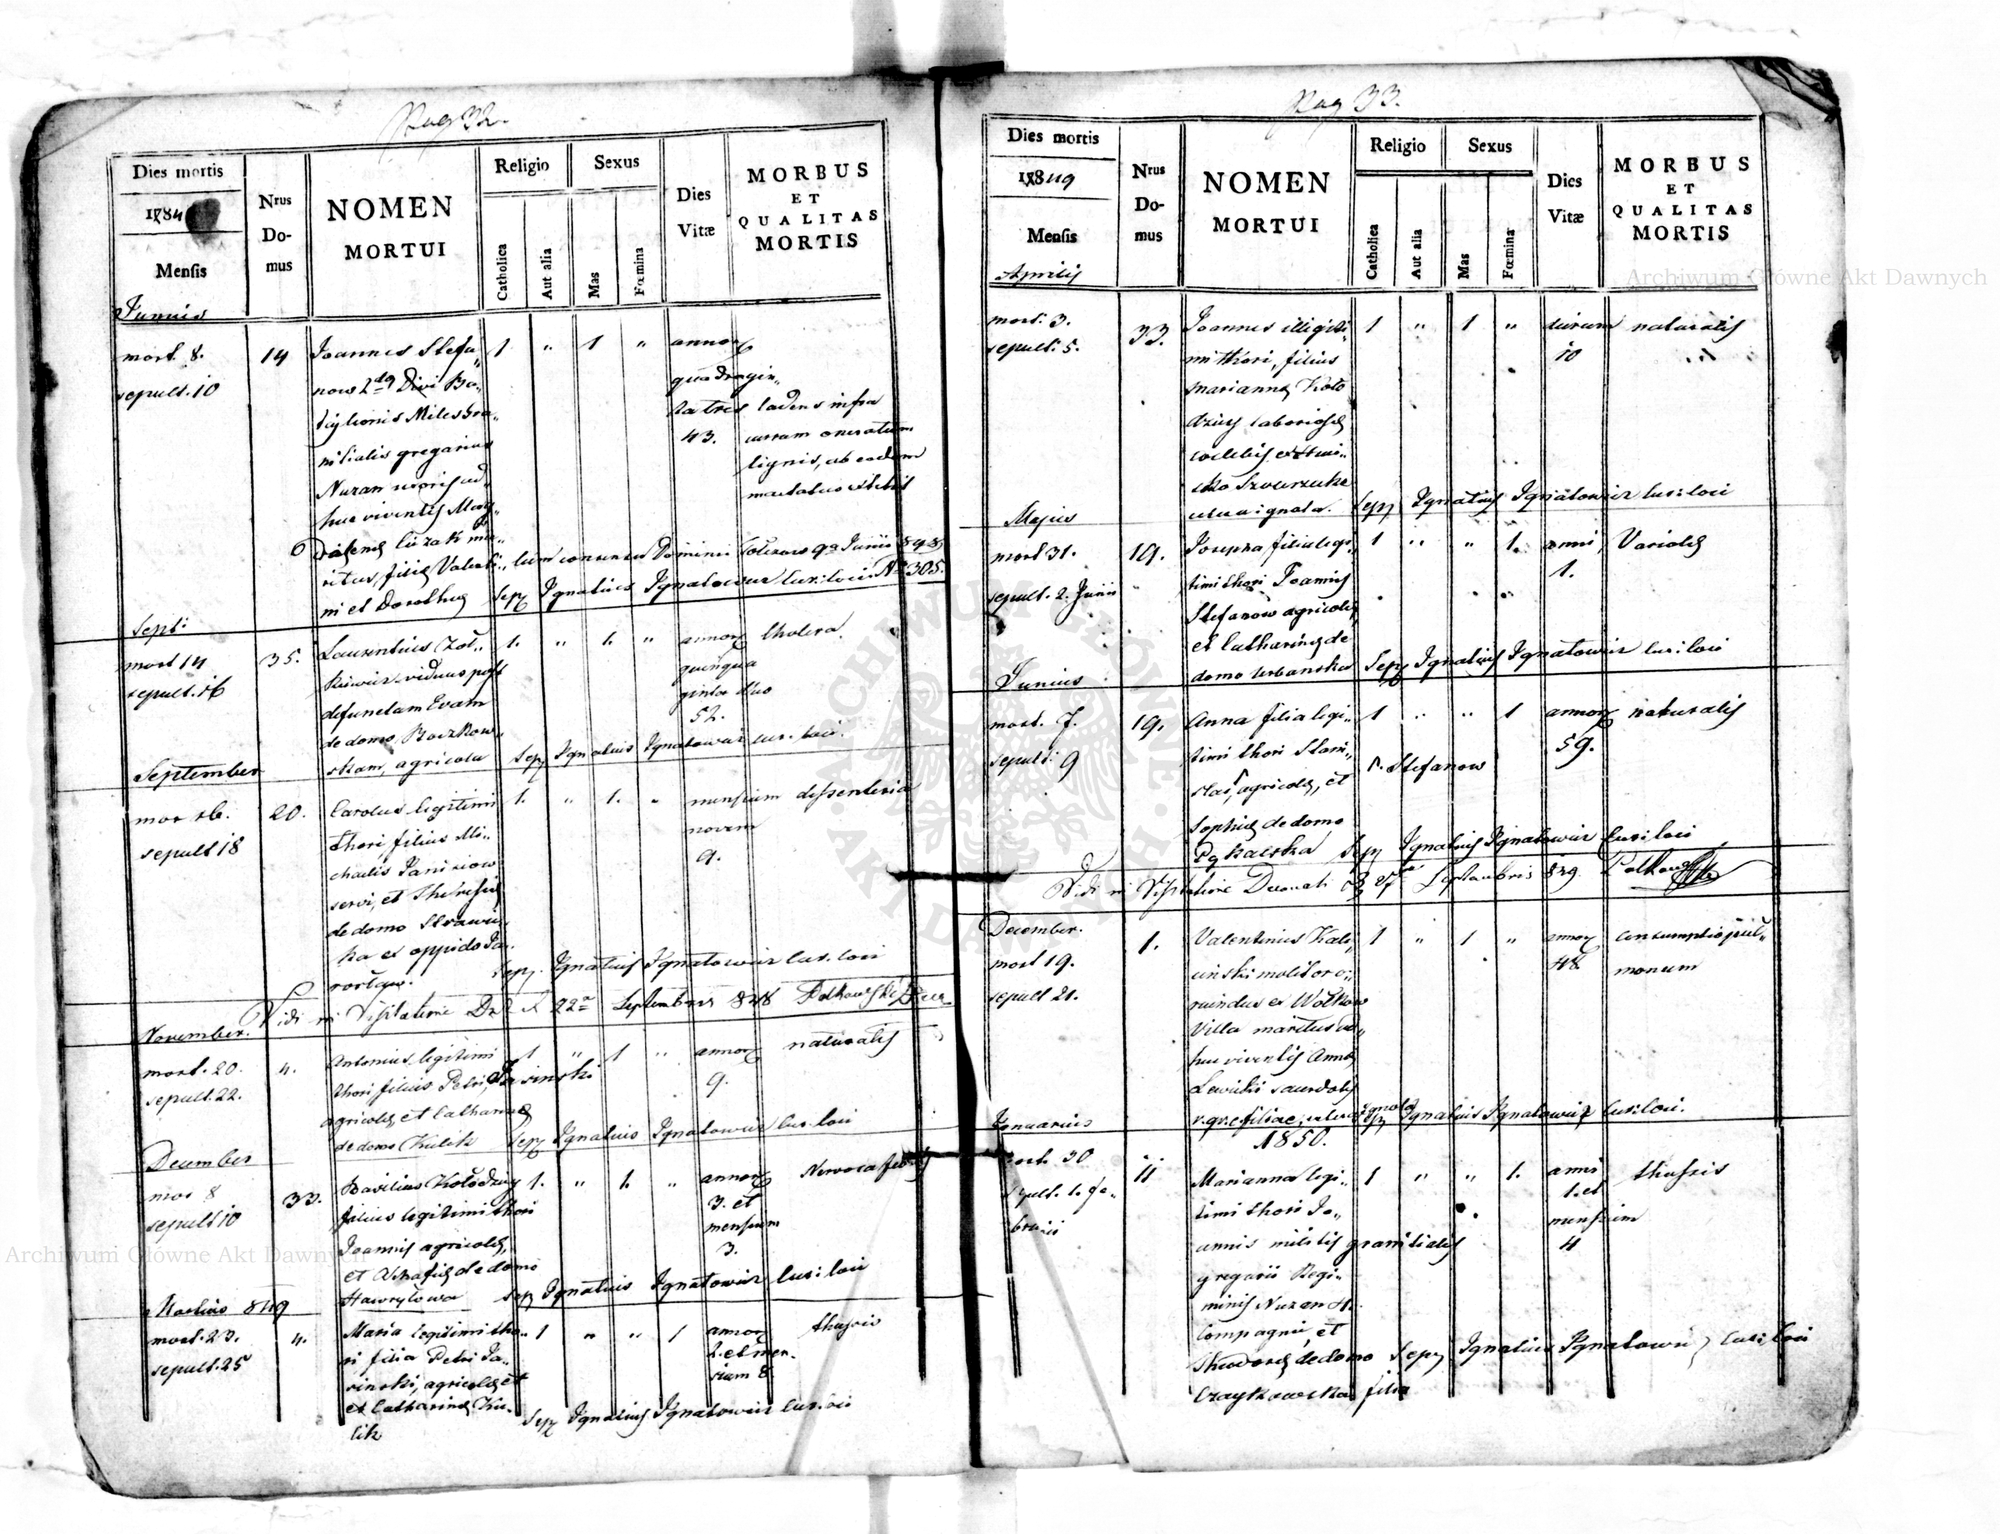 Pag 32.
Dies mortis
1784
Mensis
Nrus
Do-
mus
NOMEN
MORTUI
Religio
Catholica
Aut alia
Sexus
Mas
Fœmina
Dies
Vitæ
MORBUS
ET
QUALITAS
MORTIS
Junius
mort. 8.
sepult. 10
14
Joannes Stefa„
now 2do Divi Ba„
taglionis Miles gra„
nitialis gregarius
Nuzan uxoris ad„
huc viventis Mag„
dalenæ
ritus, filius Valent„
ni et Dorotheæ
1
"
1
"
annorum
quadragin„
ta tres
43.
cadens infra
currum oneratum
lignis, ab eodem
Cum consensu Dominii 9a Junii 848
Sepel. Ignatius Ignatowicz Cur. loci No 305.
Sept:
mort 14
sepult. 16
35.
Laurentius Zoł„
kiewicz viduus post
defunctam Evam
de domo Baczkow„
skam, agricola
1.
"
1.
"
annorum
quinqua
ginta duo
52.
Cholera.
Sepel. Ignatius Ignatowicz Cur. loci.
September
mor 16.
sepult 18
20.
Carolus legitimi
thori filius Mi„
chaelis Janiszow
servi, et Theresiæ
de domo
ka ex oppido Ja„
rorław.
1.
"
1.
"
mensium
novem
9.
dissenteria
Sepel. Ignatius Ignatowicz Cur. loci
Vidi in Visitatione 22a Septembris 848
November.
mort. 20.
sepult. 22.
4.
Antonius legitimi
thori filius Petri Jasinski
agricolæ, et Catharinæ
de domo Kulik
1
"
1
"
annorum
9.
naturalis
Sepel. Ignatius Ignatowicz Cur. loci
December
mor 8
sepult 10
33.
Basilius Kołodziey
filius legitimi thori
Joannis agricolæ,
et de domo
Hawryłowa
1.
"
1.
"
annorum
3. et
mensium
3.
Nervosa febris
Sepel. Ignatius Ignatowicz Cur. loci
Martius 849
mort. 23.
sepult. 25
4.
Maria legitimi tho„
ri filia Petri Ja„
sinski, agricolæ et
et Catharinæ Ku„
lik
1
"
"
1
annorum
2. et men„
sium 8
thussis
Sepel. Ignatius Ignatowicz Cur. loci
Pag 33.
Dies mortis
1849
Mensis
Nrus
Do-
mus
NOMEN
MORTUI
Religio
Catholica
Aut alia
Sexus
Mas
Fœmina
Dies
Vitæ
MORBUS
ET
QUALITAS
MORTIS
Aprilis
mort. 3.
sepult. 5.
33.
Joannes illegiti„
mi thori, filius
Mariannæ Koło
dziey laboriosæ
cælebis
1
"
1
"
dierum
10
naturalis
Sepel. Ignatius Ignatowicz Cur. loci
Majus
mort 31.
sepult. 2. Junii
19.
Josepha filia legi„
timi thori Joannis
Stefanow agricolæ,
et Catharinæ de
domo Urbanska
1
"
"
1.
anni
1.
Variolæ
Sepel. Ignatius Ignatowicz Cur. loci
Junius
mort. 7.
sepult. 9
19.
Anna filia legi„
timi thori Stani„
slai, agricolæ, et
Stefanow
Sophiæ de domo
1
"
"
1
annorum
59.
naturalis
Sepel. Ignatius Ignatowicz Cur. loci
Vidi in Visitatione Decanali Septembris 849
December.
mort 19.
sepult 21.
1.
Valentinius Kali„
cinski molitor o„
riundus ex Wołkow
Villa maritus ad„
huc viventis Annæ
Lewicki sacerdotis
r. gr. c. filiae,
1
"
1
"
annorum
48
consumptio pul„
monum
Sepel. Ignatius Ignatowicz Cur. loci.
Januarius
1850.
mort. 30
sepult. 1. Fe„
bruii
11
Marianna legi„
timi thori Jo„
annis militis granitialis
gregarii Regi„
minis Nuzan 4.
Compagnii, et
Theodoræ de domo
Czaykowska filia
1
"
"
1.
anni
1. et
mensium
4
thussis
Sepel. Ignatius Ignatowicz Cur. loci
Archiwum Główne Akt Dawnych
Archiwum Główne Akt Dawnych
ARCHIWUM GŁÓWNE AKT DAWNYCH